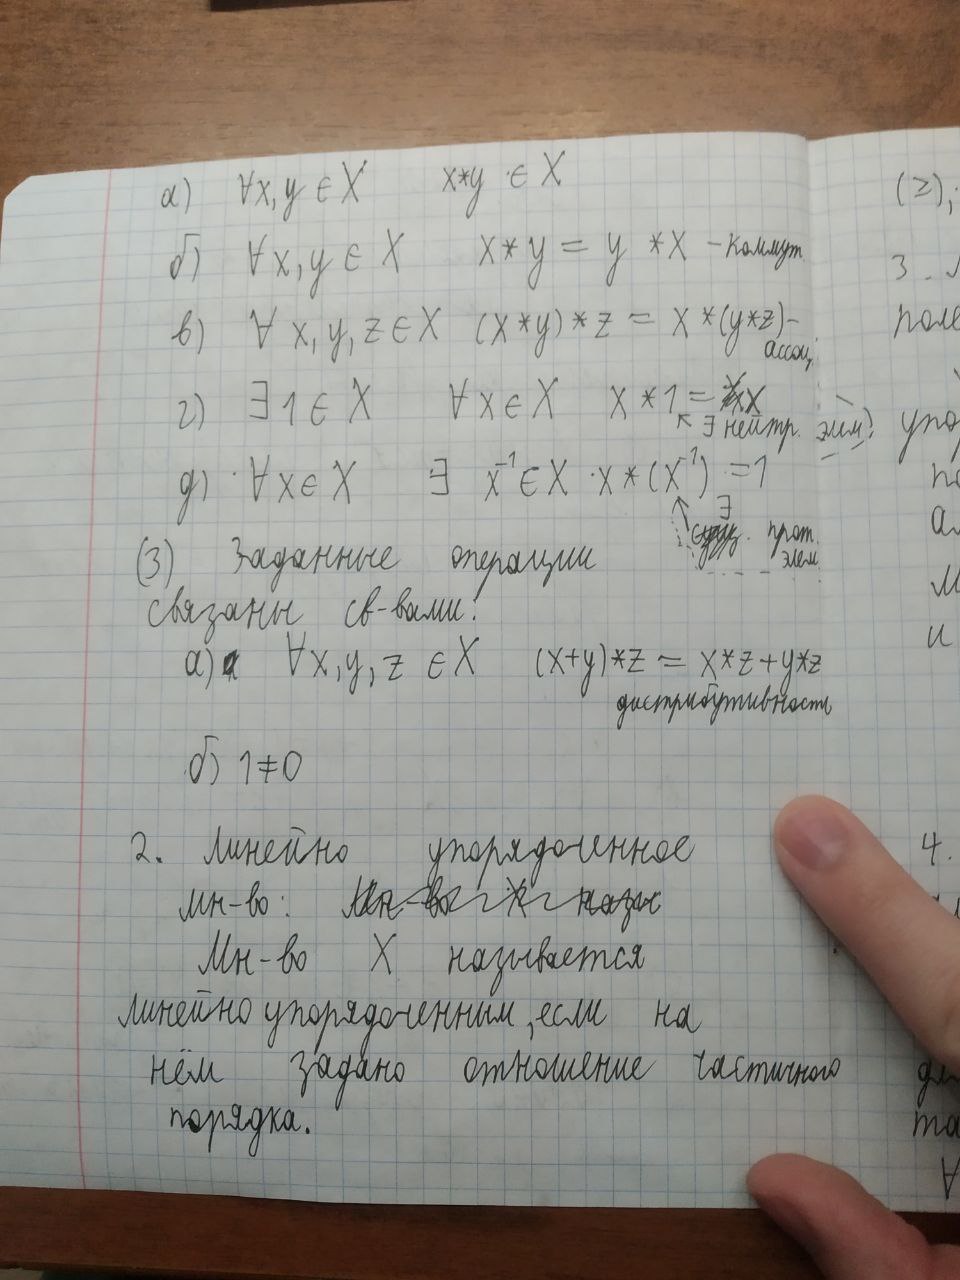 а) ∀x, y ∈ X x*y ∈ X
б) ∀x, y ∈ X x*y = y*x – коммут
в) ∀ x, y, z ∈ X (x*y)*z = x*(y*z) –
ассоц.
г) ∃ 1 ∈ X ∀x ∈ X x*1 = x
∃ нейтр. элем.
д) ∀x ∈ X ∃ x⁻¹ ∈ X x*(x⁻¹) = 1
∃
прот.
элем
(3) Заданные операции
связаны св-вами:
а) ∀x, y, z ∈ X (x+y)*z = x*z+y*z
дистрибутивность
б) 1≠0
2. Линейно упорядоченное
мн-во: Мн-во X назыв
Мн-во X называется
линейно упорядоченным, если на
нём задано отношение частичного
порядка.
(≥);
3.
поле
упор
по
ал
м
и
4.
∀